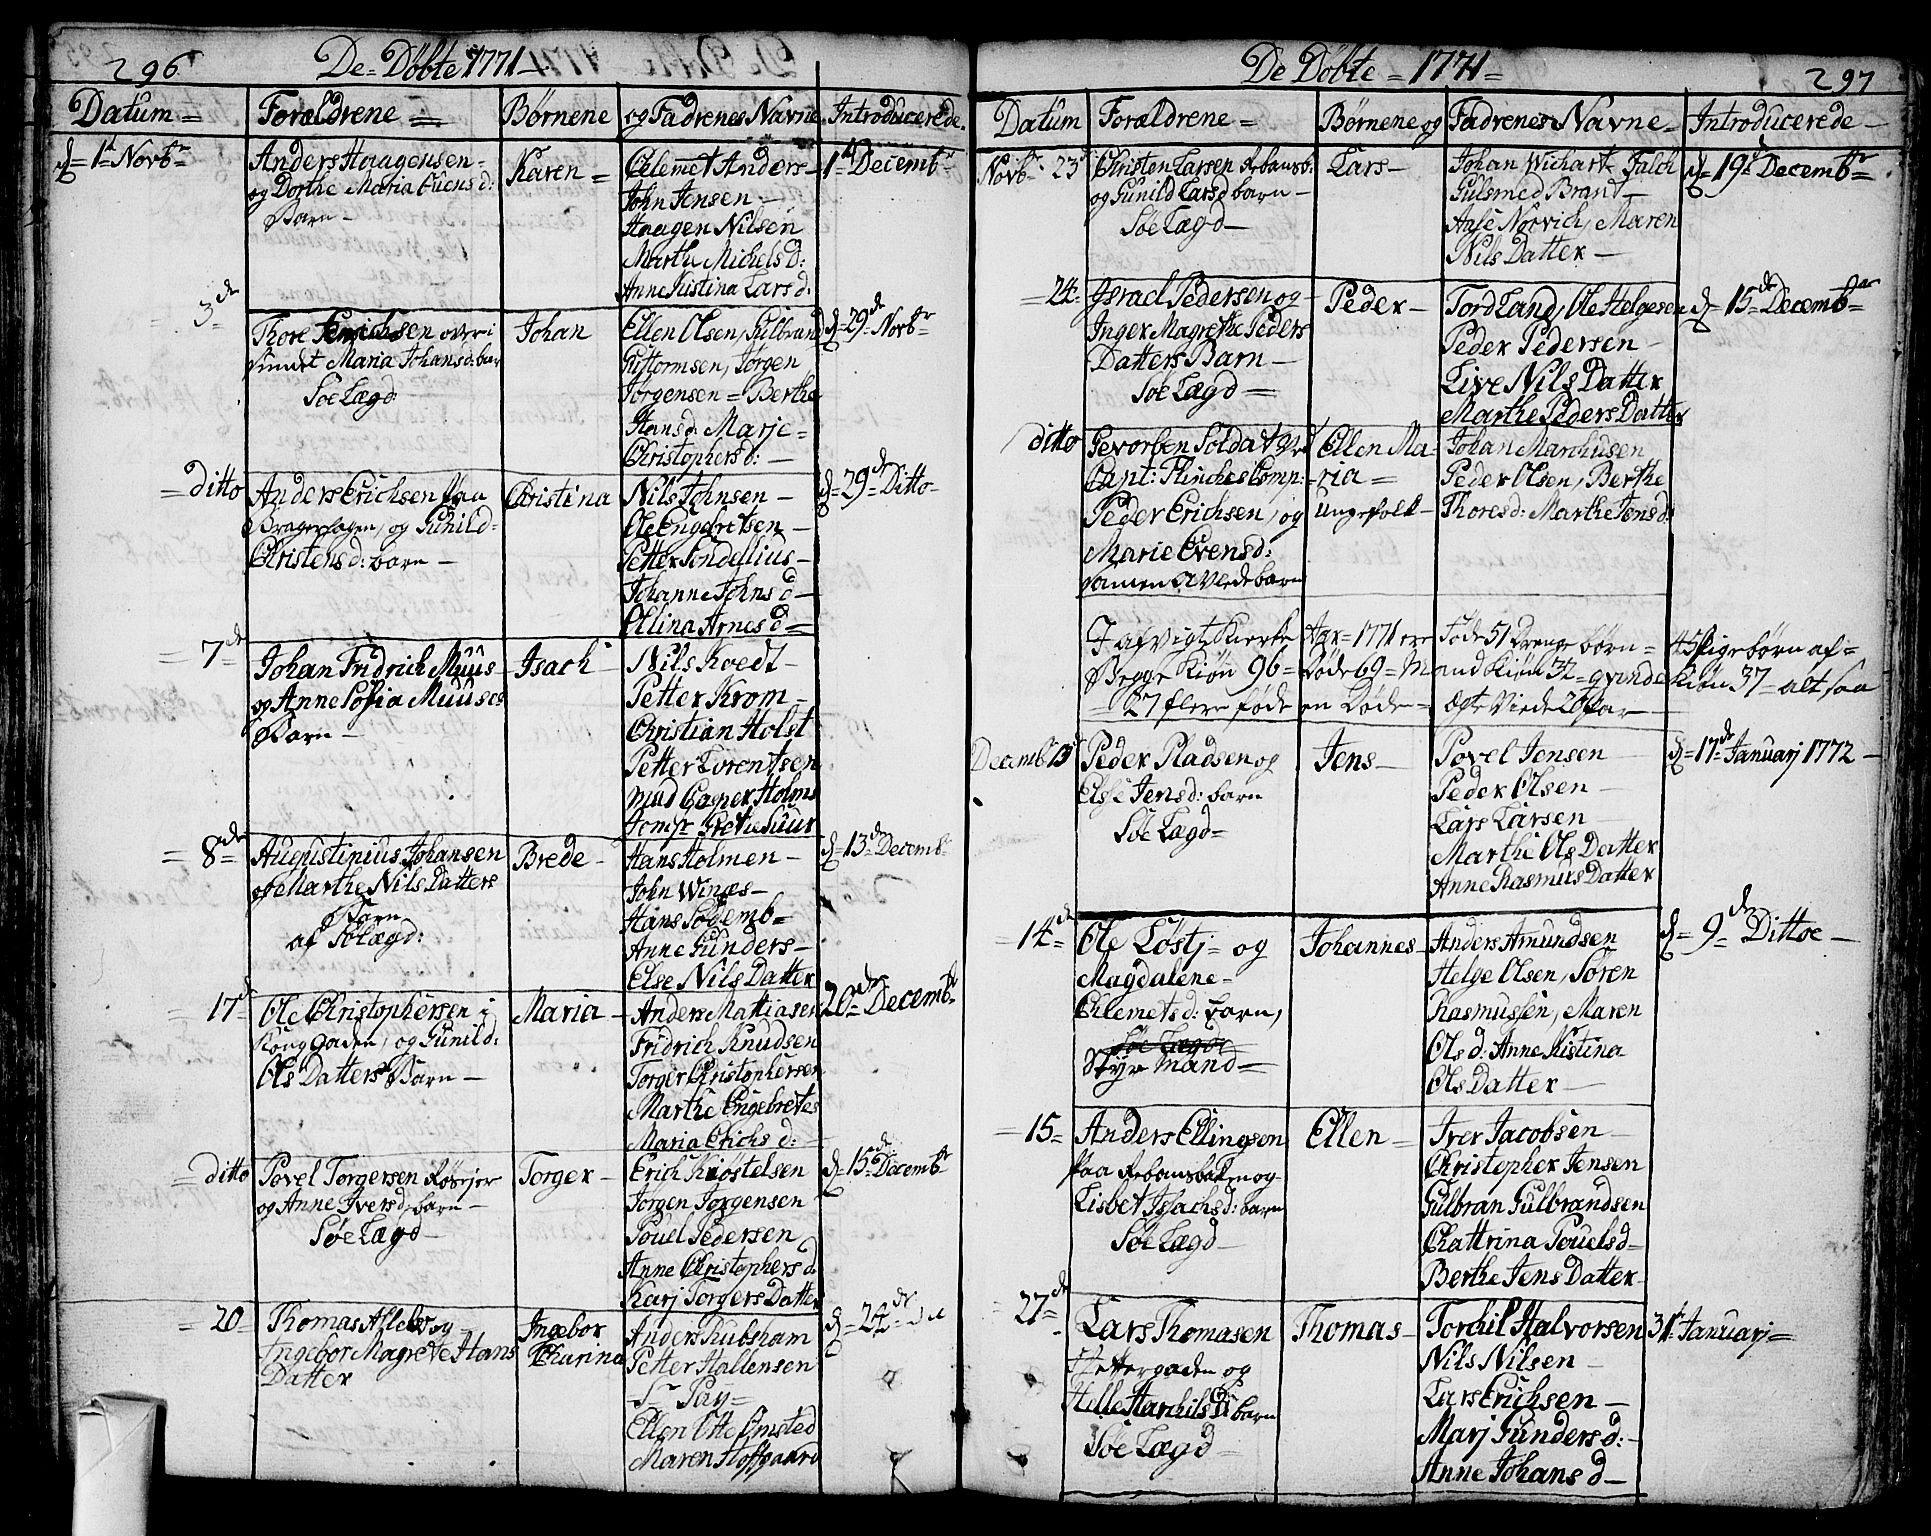 296
De Døbte 1771
Datum
Forældrene
Børnene
og Fadrenes Navne
Introducerede
d. 1st Novbr
Anders Haagensen
og Dorthe Maria Evens d:
Barn
Karen
Clemet Anders
John Jensen
Haagen Nilsen
Marthe Michels d:
Anne Kistina Lars d:
1st Decembr
3de
Thore
Maria Johans d: bar
Søe Lægd
Johan
Ellen Olsen, Gulbrand
Guttormsen, Jørgen
Jørgensen = Berthe
Hans d: Marje
Christophers d:
d. 29de Novbr
ditto
Anders Erichsen paa
Bragerhagen, og Gunild
Christens d: barn
Christina
Nils Johnsen
Ole Engebretsen
Petter Sondellius
Johanne Johns d
Ellina Arnes d
d. 29de Ditto
7de
Johan Fridrich Muus
og Anne Sofia Muuses
Barn
Isach
Nils Koedt
Petter Krom
Christian Holst
Petter Lorentsen
Mad Casper Holms
Jomfr Grethe Suur
8de
Augustinius Johansen
og Marthe Nils Datters
Barn
af Søelægd:
Brede
Hans Holmen
John Winæs
Hans Sødemb
Anne Gunders
Else Nils Datter
d. 13de Decemb
17de
Ole Christophersen i
Kong Gaden, og Gunild
Ols Datters Barn
Maria
Anders Mattiasen
Fridrich Knudsen
Torger Christophersen
Marthe Engebretes
Maria Erichs d:
20de Decembr
ditto
Povel Torgersen
og Anne Ivers d: barn
Søe Lægd
Torger
Erich Kiøstelsen
Jørgen Jørgensen
Pouel Pedersen
Anne Christophers d
Karj Torgers Datter
d. 15de Decembr
20
Thomas Allebog
Ingebor Magrete Hans
Datter
Ingebor
Tharina
Anders Kubsham
Petter Hallensen
Sr Pay
Ellen Otte Omsted
Maren Hoffgaard
d. 24de
De Døbte 1771
297
Datum
Forældrene
Børnene og
Fadrenes Navne
Introducerede
Novbr 23
Christen Larsen
og Gunild Lars d barn
Søe Lægd
Lars
Johan Wichart Falch
Gulsmed Brant
Aase Norvich, Maren
Nils Datter
d. 19de Decembr
24
Israel Pedersen og
Inger Magrethe Peders
Datters Barn
Søe Lægd
Peder
Tord Land, Ole Helgesen
Peder Pedersen
Live Nils Datter
Marthe Peders Datter
d. 15de Decembr
ditto
Gevorben Soldat
Capt: Flinches Comp:
Peder Erichsen, og
Marie Evens d:
samen Avlede barn
Ellen Maria
Ungefolk
Johan Marchusen
Peder Olsen, Berthe
Thores d: Marthe Jens d:
I afvigte Kierke Aar 1771 ere føde 51 Drenge børn 45 Pigebørn af
Begge Kiøn 96 Døde 69 Mandkiøn 32 qvinde Kiøn 37 alt saa
27 flere føde en Døde ægte Viede 26 par
Decemb 13
Peder Pladsen og
Else Jens d: barn
Søe Lægd
Jens
Povel Jensen
Peder Olsen
Lars Larsen
Marthe Ols Datter
Anne Rasmus Datter
d. 17de Januarj 1772
14de
Ole Løstj og
Magdalene
Clemets d: barn,
Søe Lægd
Styrmand
Johannes
Anders Amundsen
Helge Olsen, Søren
Rasmussen, Maren
Ols d: Anne Kistina
Ols Datter
d. 9de Dittoe
15
Anders Ellingsen
paa Rebansbaken og
Lisbet Isachs d: barn
Søe Lægd
Ellen
Iver Jacobsen
Christopher Jensen
Gulbran Gulbrandsen
Chattrina Pouels d
Berthe Jens Datter
27de
Lars Thomasen
og
Helle Harchils D: barn
Søe Lægd
Thomas
Torchil Halvorsen
Nils Nilsen
Lars Erichsen
Marj Gunders d:
Anne Johans d
31t Januarj